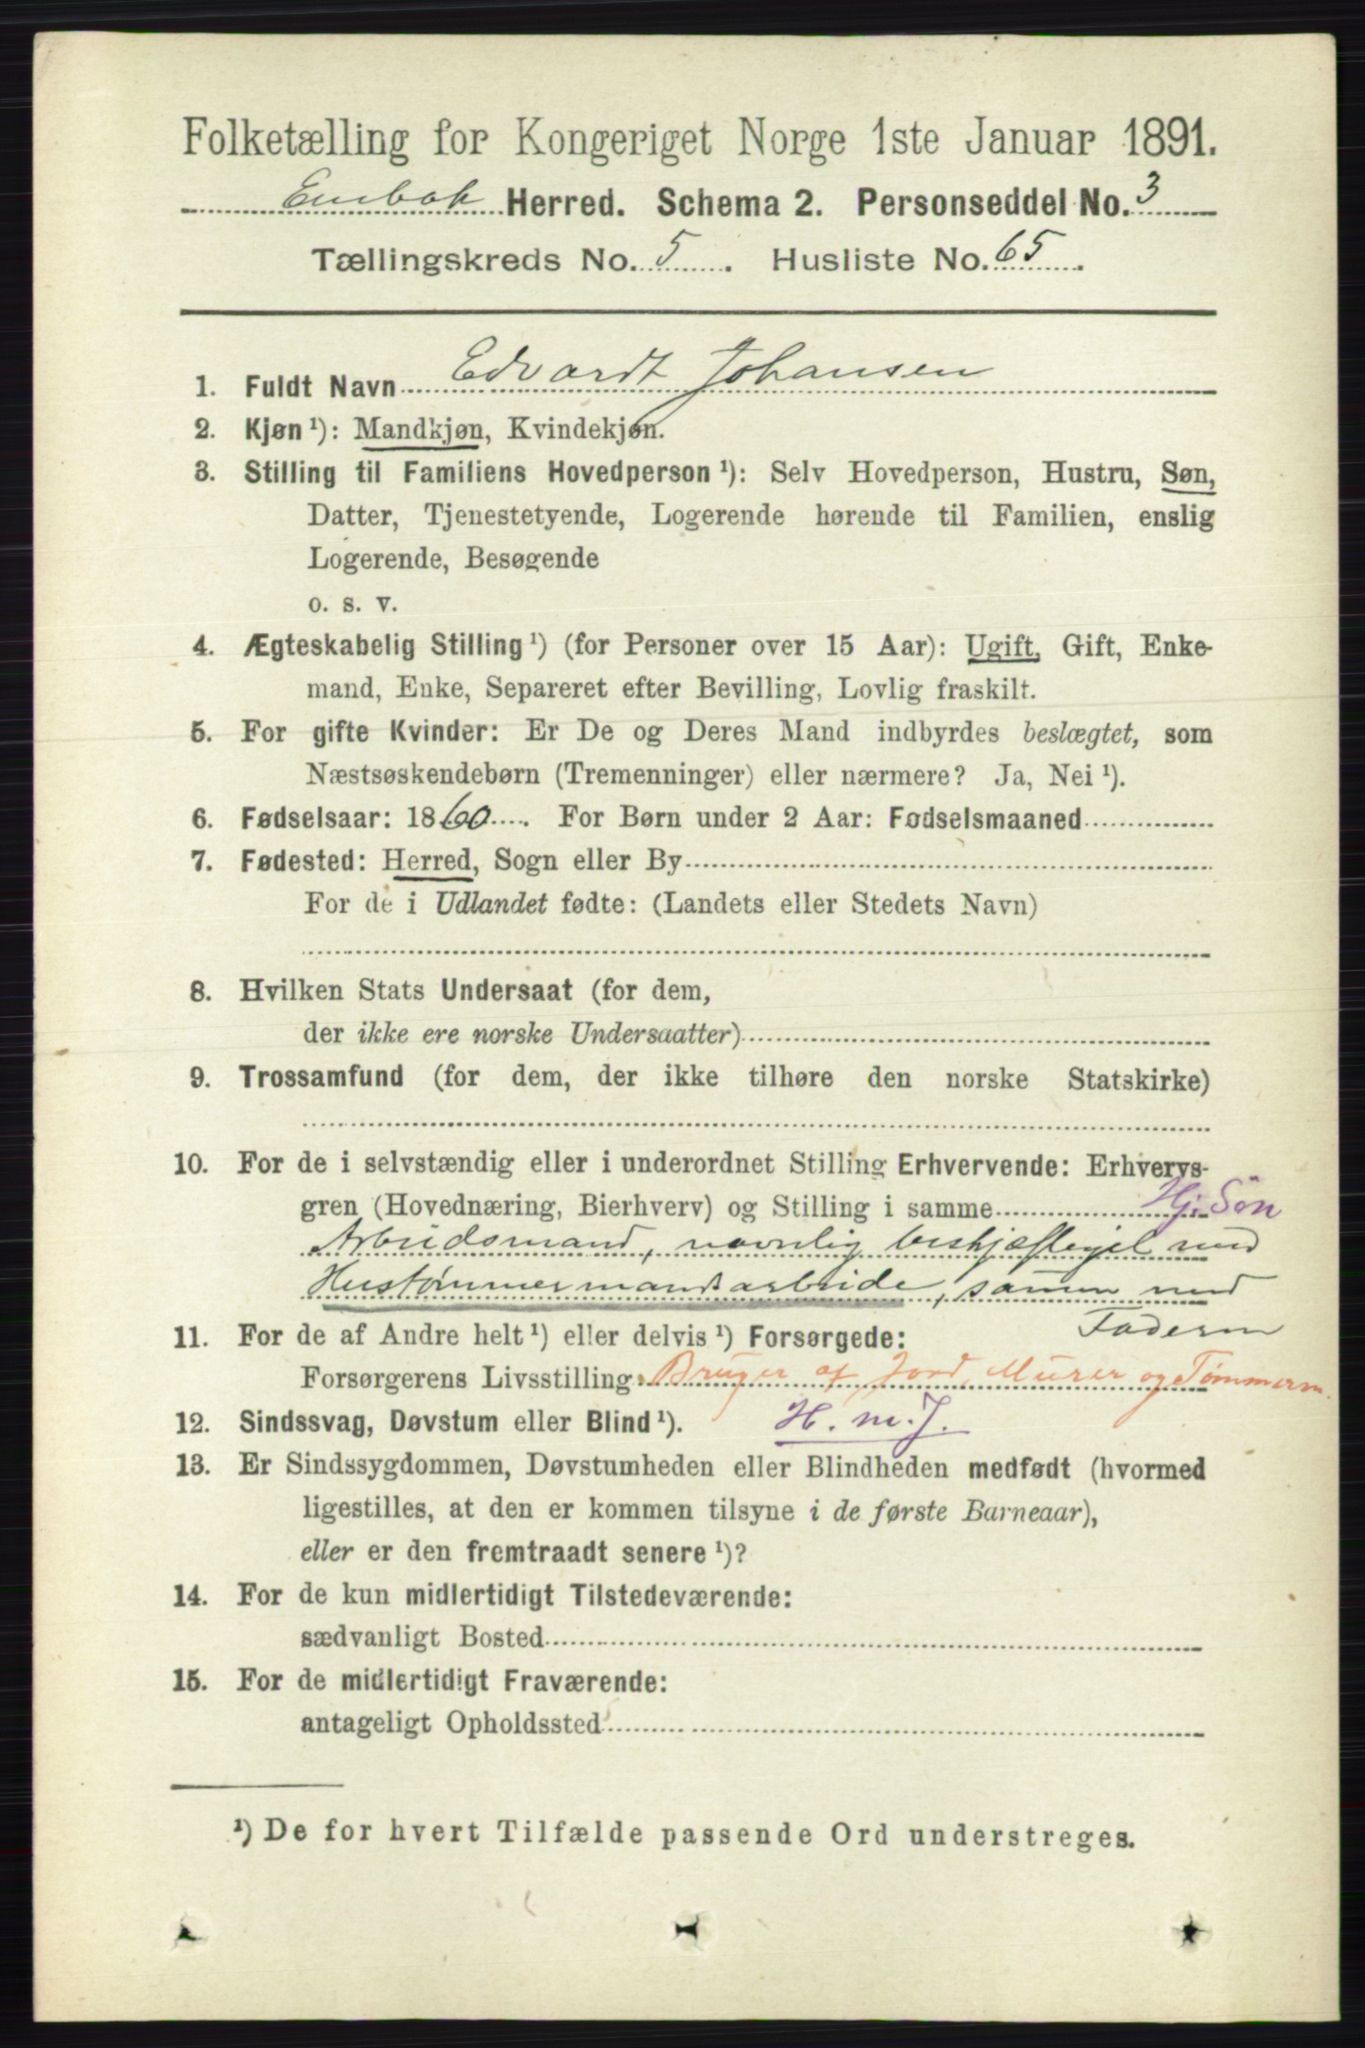 Folketælling for Kongeriget Norge 1ste Januar 1891.
Enebak Herred. Schema 2. Personseddel No. 3
Tællingskreds No. 5. Husliste No. 65.
1. Fuldt Navn Edvardt Johansen
2. Kjøn ¹): Mandkjøn, Kvindekjøn.
3. Stilling til Familiens Hovedperson ¹): Selv Hovedperson, Hustru, Søn,
Datter, Tjenestetyende, Logerende hørende til Familien, enslig
Logerende, Besøgende
o. s. v.
4. Ægteskabelig Stilling ¹) (for Personer over 15 Aar): Ugift, Gift, Enke-
mand, Enke, Separeret efter Bevilling, Lovlig fraskilt.
5. For gifte Kvinder: Er De og Deres Mand indbyrdes beslægtet, som
Næstsøskendebørn (Tremenninger) eller nærmere? Ja, Nei ¹).
6. Fødselsaar: 1860. For Børn under 2 Aar: Fødselsmaaned
7. Fødested: Herred, Sogn eller By
For de i Udlandet fødte: (Landets eller Stedets Navn)
8. Hvilken Stats Undersaat (for dem,
der ikke ere norske Undersaatter)
9. Trossamfund (for dem, der ikke tilhøre den norske Statskirke)
10. For de i selvstændig eller i underordnet Stilling Erhvervende: Erhvervs-
gren (Hovednæring, Bierhverv) og Stilling i samme Hj. Sön
Arbeidsmand, navnlig beskjæftiget med
Hustømmermandsarbeide, samen med
Faderen
11. For de af Andre helt ¹) eller delvis ¹) Forsørgede:
Forsørgerens Livsstilling: Bruger af Jord, Murer og Tømmerm.
12. Sindssvag, Døvstum eller Blind ¹). H. m. J.
13. Er Sindssygdommen, Døvstumheden eller Blindheden medfødt (hvormed
ligestilles, at den er kommen tilsyne i de første Barneaar),
eller er den fremtraadt senere ¹)?
14. For de kun midlertidigt Tilstedeværende:
sædvanligt Bosted
15. For de midlertidigt Fraværende:
antageligt Opholdssted
¹) De for hvert Tilfælde passende Ord understreges.